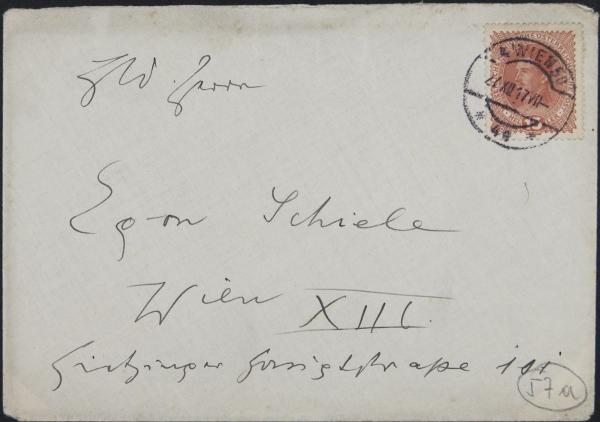 Herrn
Egon Schiele
Wien XIII.
Hietzinger Hauptstraße 101
WIEN
XII 17
15
57a